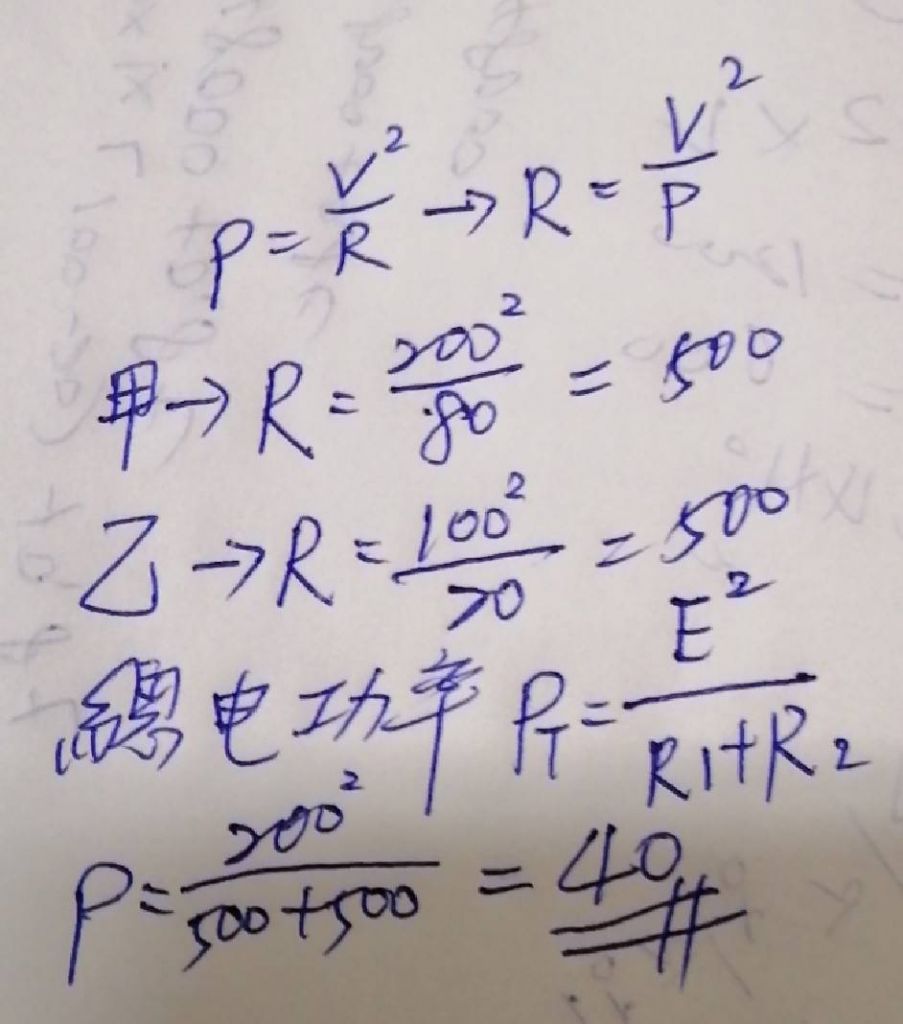 P = V²/R → R = V²/P
甲 → R = 200²/80 = 500
乙 → R = 100²/20 = 500
總电功率 P_T = E²/(R1+R2)
P = 200²/(500+500) = 40